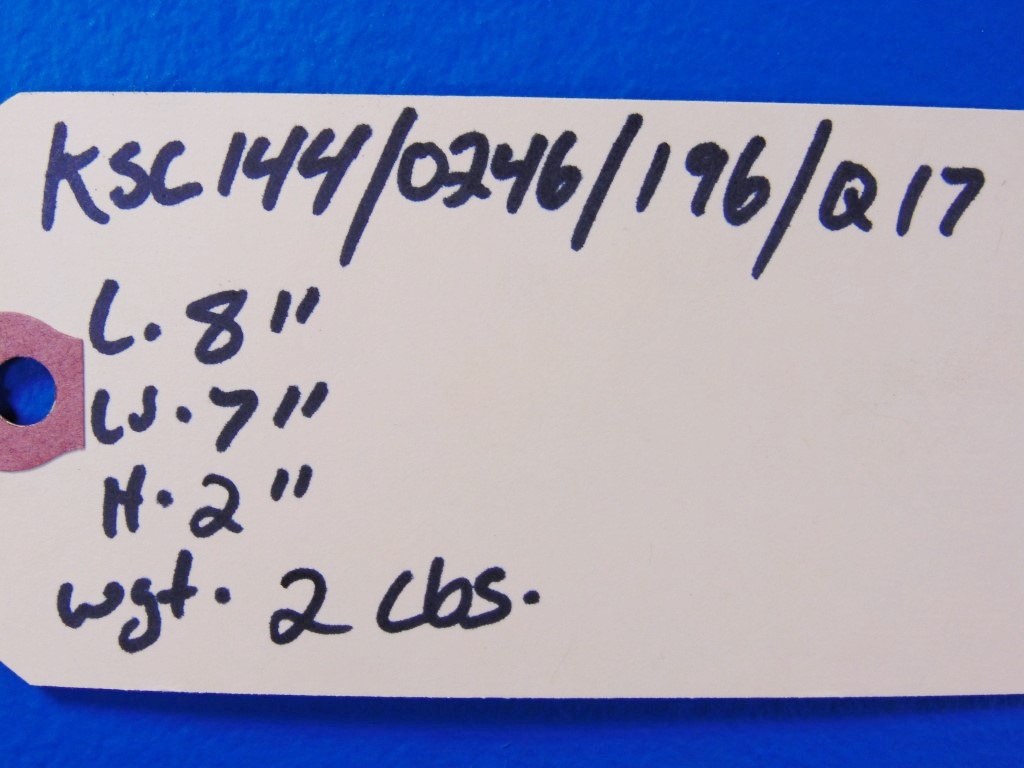 KSC144/0246/196/Q17
L. 8"
W. 7"
H. 2"
wgt. 2 Lbs.